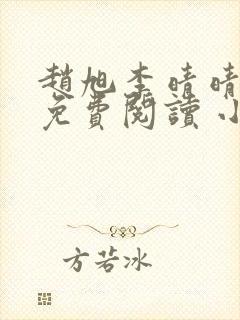 趙旭李晴晴
免費閱讀小
方若冰